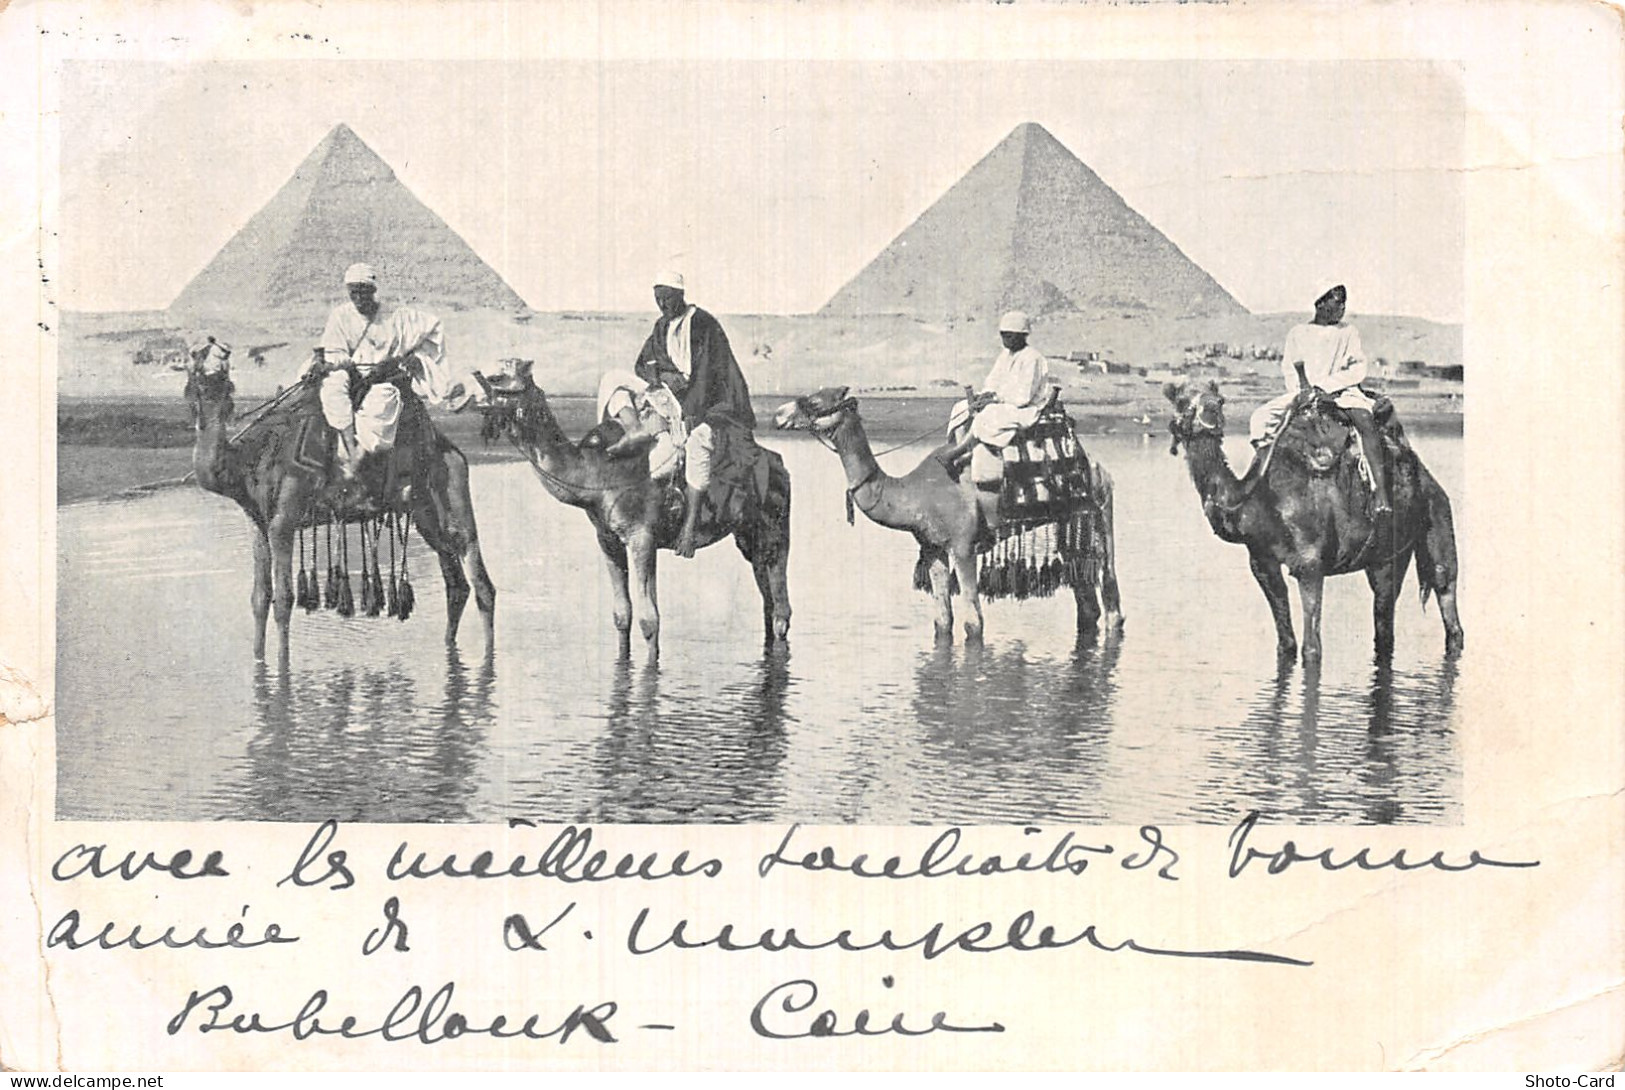 avec les meilleurs souhaits de bonne
année de L. Munkler
Babellouk - Caire
delcampe.net/milky
Shoto-Card